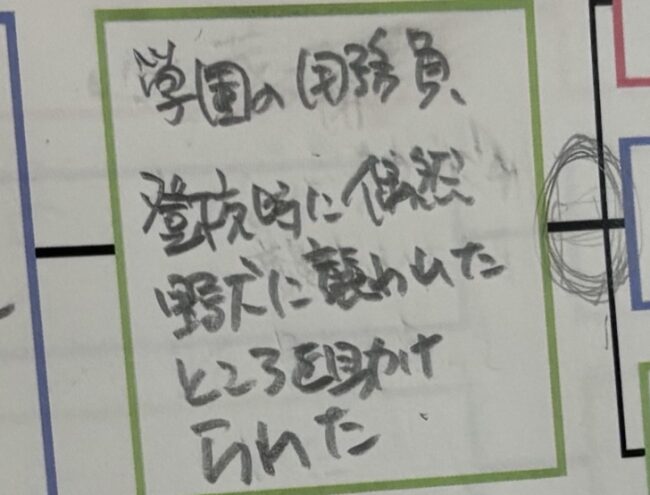 学園の用務員、
登校時に偶然
野犬に襲われた
ところを助け
られた